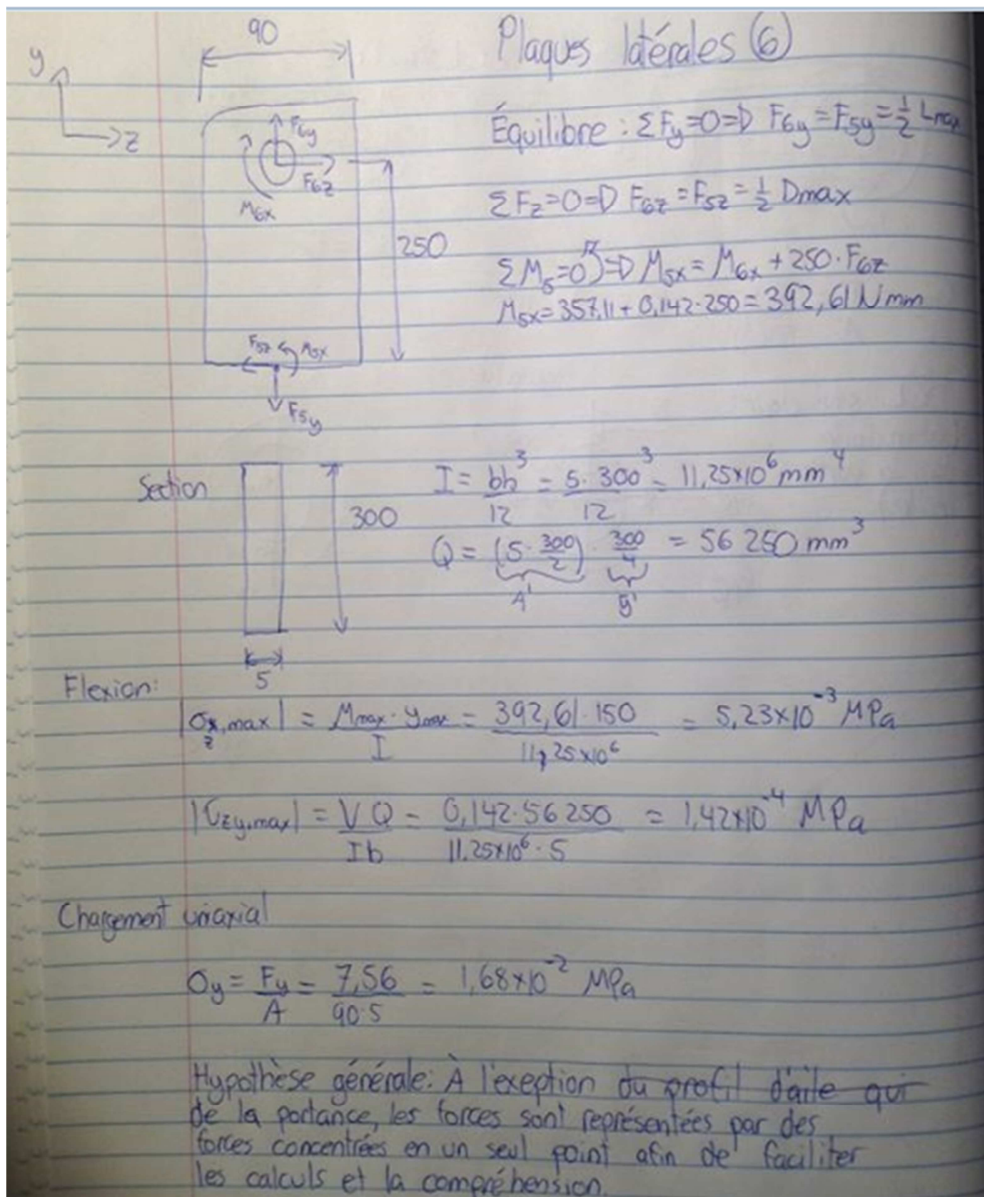 90
Plaques latérales ⑥
y
z
F6y
F6z
M6x
250
Équilibre : ΣFy=0=D F6y = F5y = 1/2 Lmax
ΣFz=0=D F6z = F5z = 1/2 Dmax
ΣM5=0=D M5x = M6x + 250·F6z
M5x = 357,11 + 0,142·250 = 392,61 Nmm
F5z M5x
F5y
Section
300
5
I = bh³/12 = 5·300³/12 = 11,25x10⁶ mm⁴
Q = (5·300/2)·300/4 = 56 250 mm³
A' y'
Flexion:
|σz,max| = Mmax·ymax/I = 392,61·150/11,25x10⁶ = 5,23x10⁻³ MPa
|τzy,max| = VQ/Ib = 0,142·56 250/11,25x10⁶·5 = 1,42x10⁻⁴ MPa
Chargement uniaxial
σy = Fy/A = 7,56/90·5 = 1,68x10⁻² MPa
Hypothèse générale: À l'exeption du profil d'aile qui
de la portance, les forces sont représentées par des
forces concentrées en un seul point afin de faciliter
les calculs et la compréhension.